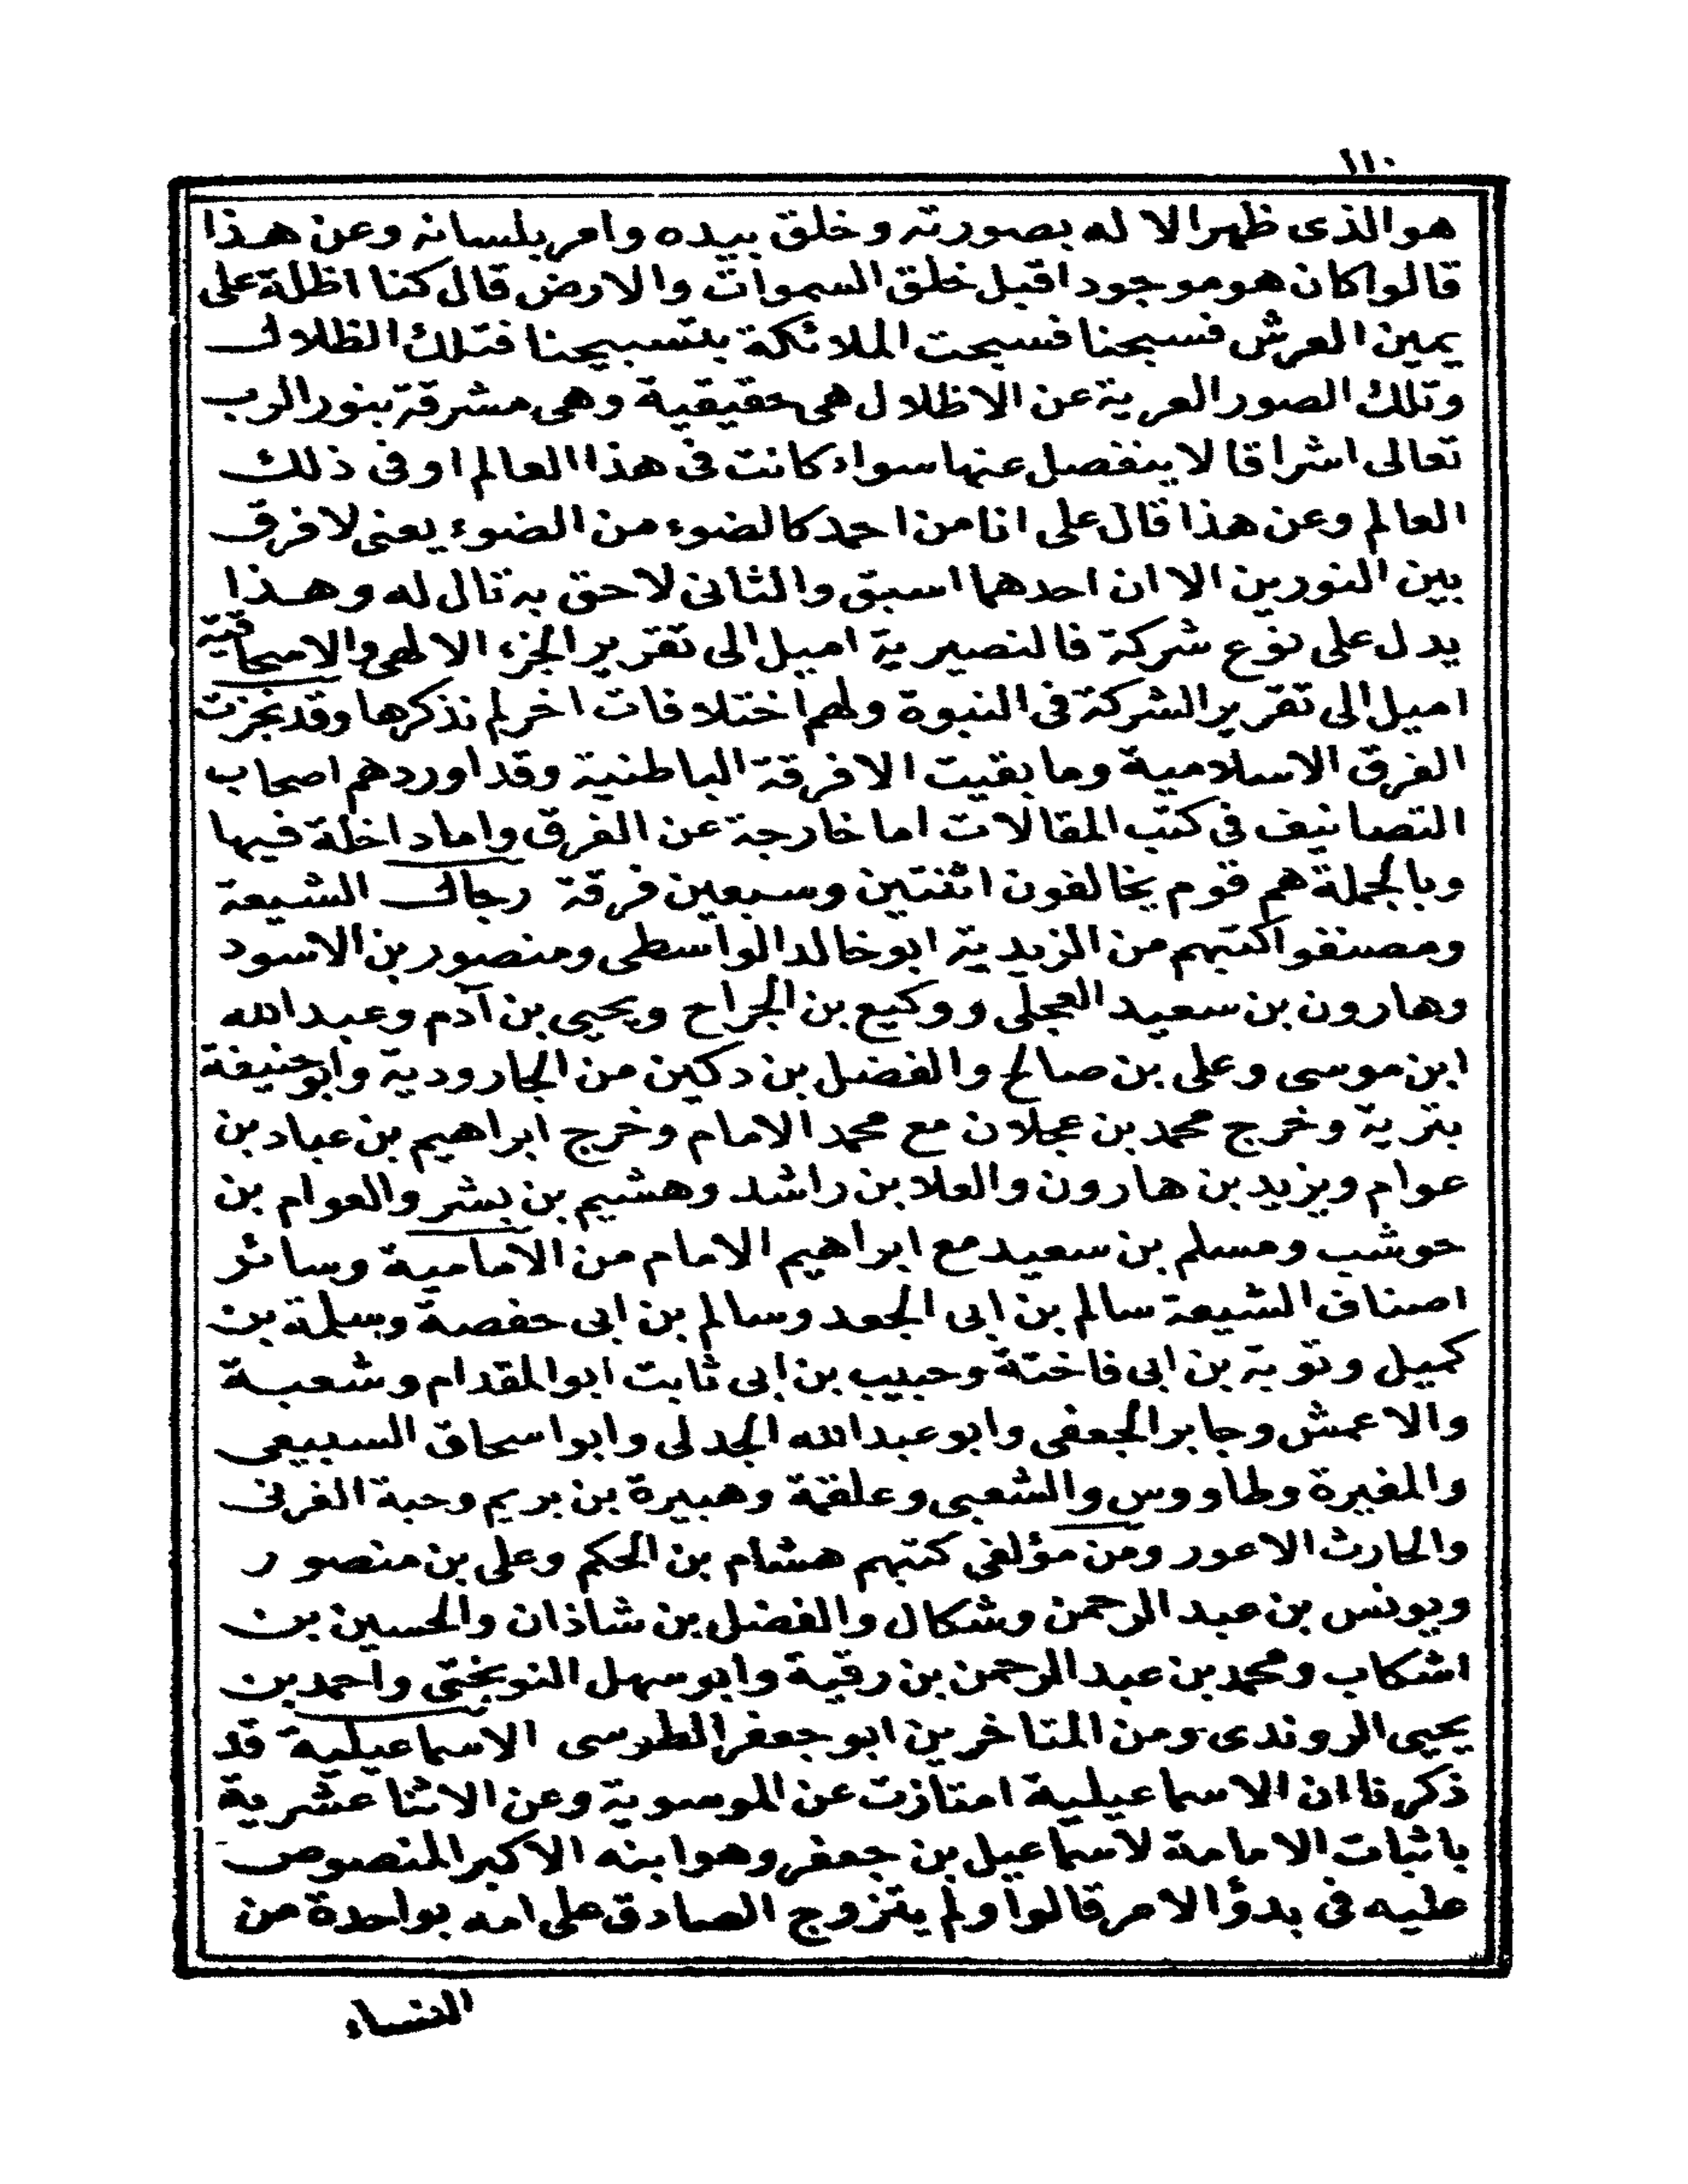 ١١٠
هو الذى ظهر الا له بصورته وخلق بيده وامر بلسانه وعن هذا
قالوا كان هو موجودا قبل خلق السموات والارض قال كنا اظلة على
يمين العرش فسبحنا فسبحت الملائكة بتسبيحنا فتلك الظلال
وتلك الصور العرية عن الاظلال هى حقيقية وهى مشرقة بنور الرب
تعالى اشراقا لا ينفصل عنها سواء كانت فى هذا العالم او فى ذلك
العالم وعن هذا قال على انا من احمد كالضوء من الضوء يعنى لا فرق
بين النورين الا ان احدهما اسبق والثانى لاحق به تال له وهذا
يدل على نوع شركة فالنصيرية اميل الى تقرير الجزء الالهى والاسحاقية
اميل الى تقرير الشركة فى النبوة ولهم اختلافات اخر لم نذكرها وقد نجزت
الفرق الاسلامية وما بقيت الا فرقة الباطنية وقد اوردهم اصحاب
التصانيف فى كتب المقالات اما خارجة عن الفرق واما داخلة فيها
وبالجملة هم قوم يخالفون اثنتين وسبعين فرقة رجال الشيعة
ومصنفوا كتبهم من الزيدية ابو خالد الواسطى ومنصور بن الاسود
وهارون بن سعيد العجلى ووكيع بن الجراح ويحيى بن آدم وعبد الله
ابن موسى وعلى بن صالح والفضل بن دكين من الجارودية وابو حنيفة
بترية وخرج محمد بن عجلان مع محمد الامام وخرج ابراهيم بن عباد بن
عوام ويزيد بن هارون والعلا بن راشد وهشيم بن بشر والعوام بن
حوشب ومسلم بن سعيد مع ابراهيم الامام من الامامية وسائر
اصناف الشيعة سالم بن ابى الجعد وسالم بن ابى حفصة وسلمة بن
كميل وتوبة بن ابى فاختة وحبيب بن ابى ثابت ابو المقدام وشعبة
والاعمش وجابر الجعفى وابو عبد الله الجدلى وابو اسحاق السبيعى
والمغيرة وطاووس والشعبى وعلقمة وهبيرة بن بريم وحبة الغرنى
والحارث الاعور ومن مؤلفى كتبهم هشام بن الحكم وعلى بن منصور
ويونس بن عبد الرحمن وشكال والفضل بن شاذان والحسين بن
اشكاب ومحمد بن عبد الرحمن بن رقية وابو سهل النوبختى واحمد بن
يحيى الروندى ومن المتاخرين ابو جعفر الطوسى الاسماعيلية قد
ذكرنا ان الاسماعيلية امتازت عن الموسوية وعن الاثنا عشرية
باثبات الامامة لاسماعيل بن جعفر وهو ابنه الاكبر المنصوص
عليه فى بدؤ الامر قالوا ولم يتزوج الصادق على امه بواحدة من
النساء